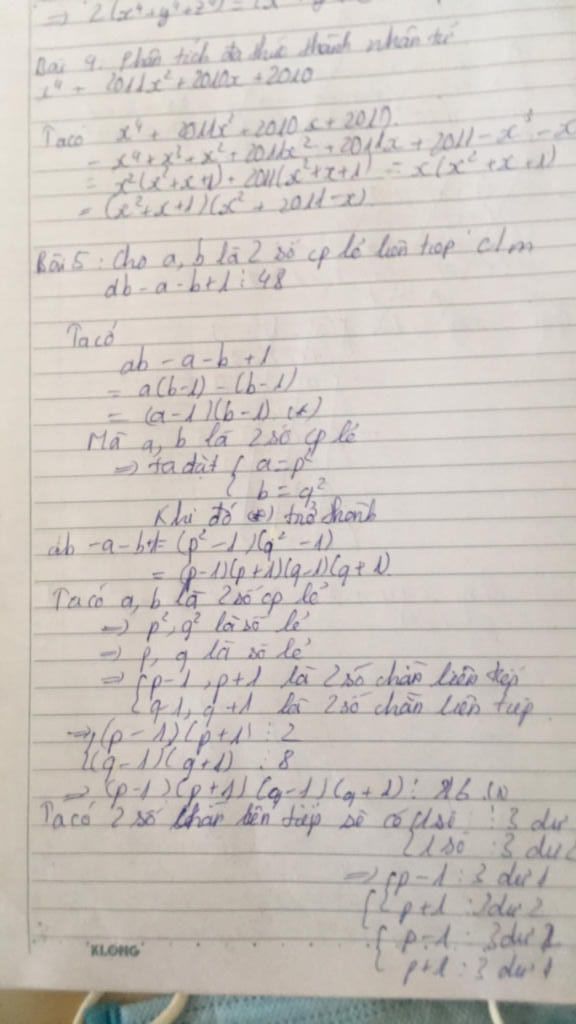 => 2(x⁴+y⁴+z⁴) = (x
Bài 4. Phân tích đa thức thành nhân tử
x⁴ + 2011x² + 2010x + 2010
Ta có x⁴ + 2011x² + 2010x + 2010
= x⁴ + x³ + x² + 2011x² + 2011x + 2011 - x³ - x
= x²(x²+x+1) + 2011(x²+x+1) = x(x²+x+1)
= (x²+x+1)(x² + 2011-x)
Bài 5: Cho a, b là 2 số cp lẻ liên tiếp c/m
ab - a - b + 1 ⋮ 48
Ta có
ab - a - b + 1
= a(b-1) - (b-1)
= (a-1)(b-1) (*)
Mà a, b là 2 số cp lẻ
=> ta đặt { a = p²
{ b = q²
Khi đó (*) trở thành
ab - a - b + 1 = (p²-1)(q²-1)
= (p-1)(p+1)(q-1)(q+1)
Ta có a, b là 2 số cp lẻ
=> p², q² là số lẻ
=> p, q là số lẻ
=> { p-1, p+1 là 2 số chẵn liên tiếp
{ q-1, q+1 là 2 số chẵn liên tiếp
=> { (p-1)(p+1) ⋮ 2
{ (q-1)(q+1) ⋮ 8
=> (p-1)(p+1)(q-1)(q+1) ⋮ 16 (1)
Ta có 2 số chẵn liên tiếp sẽ có { 1 số : 3 dư
{ 1 số : 3 dư 2
=> { p-1 : 3 dư 1
{ p+1 : 3 dư 2
{ p-1 : 3 dư 2
{ p+1 : 3 dư 1
KLONG